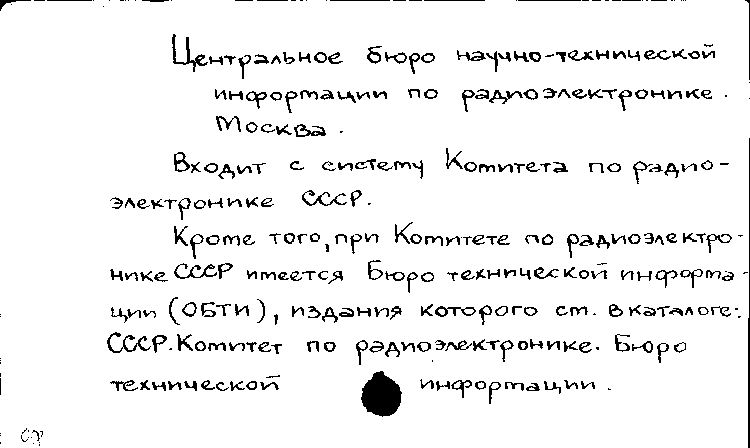 Центральное бюро научно-технической
информации по радиоэлектронике.
Москва.
Входит с систему Комитета по радио-
электронике СССР.
Кроме того, при Комитете по радиоэлектро-
нике СССР имеется Бюро технической информа-
ции (ОБТИ), издания которого см. в каталоге:
СССР. Комитет по радиоэлектронике. Бюро
технической информации.